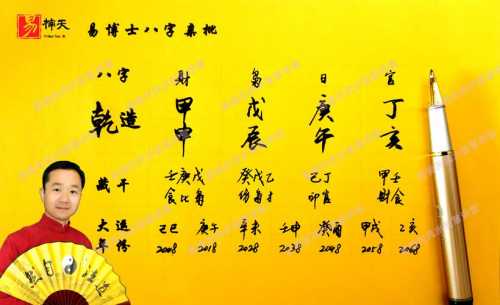 易
易博士八字亲批
八字 財 梟 日 官
乾造 甲 戊 庚 丁
申 辰 午 亥
藏干 壬庚戊 癸戊乙 己丁 甲壬
食比梟 伤梟才 印官 財食
大运 己巳 庚午 辛未 壬申 癸酉 甲戌 乙亥
年份 2008 2018 2028 2038 2048 2058 2068
道法自然